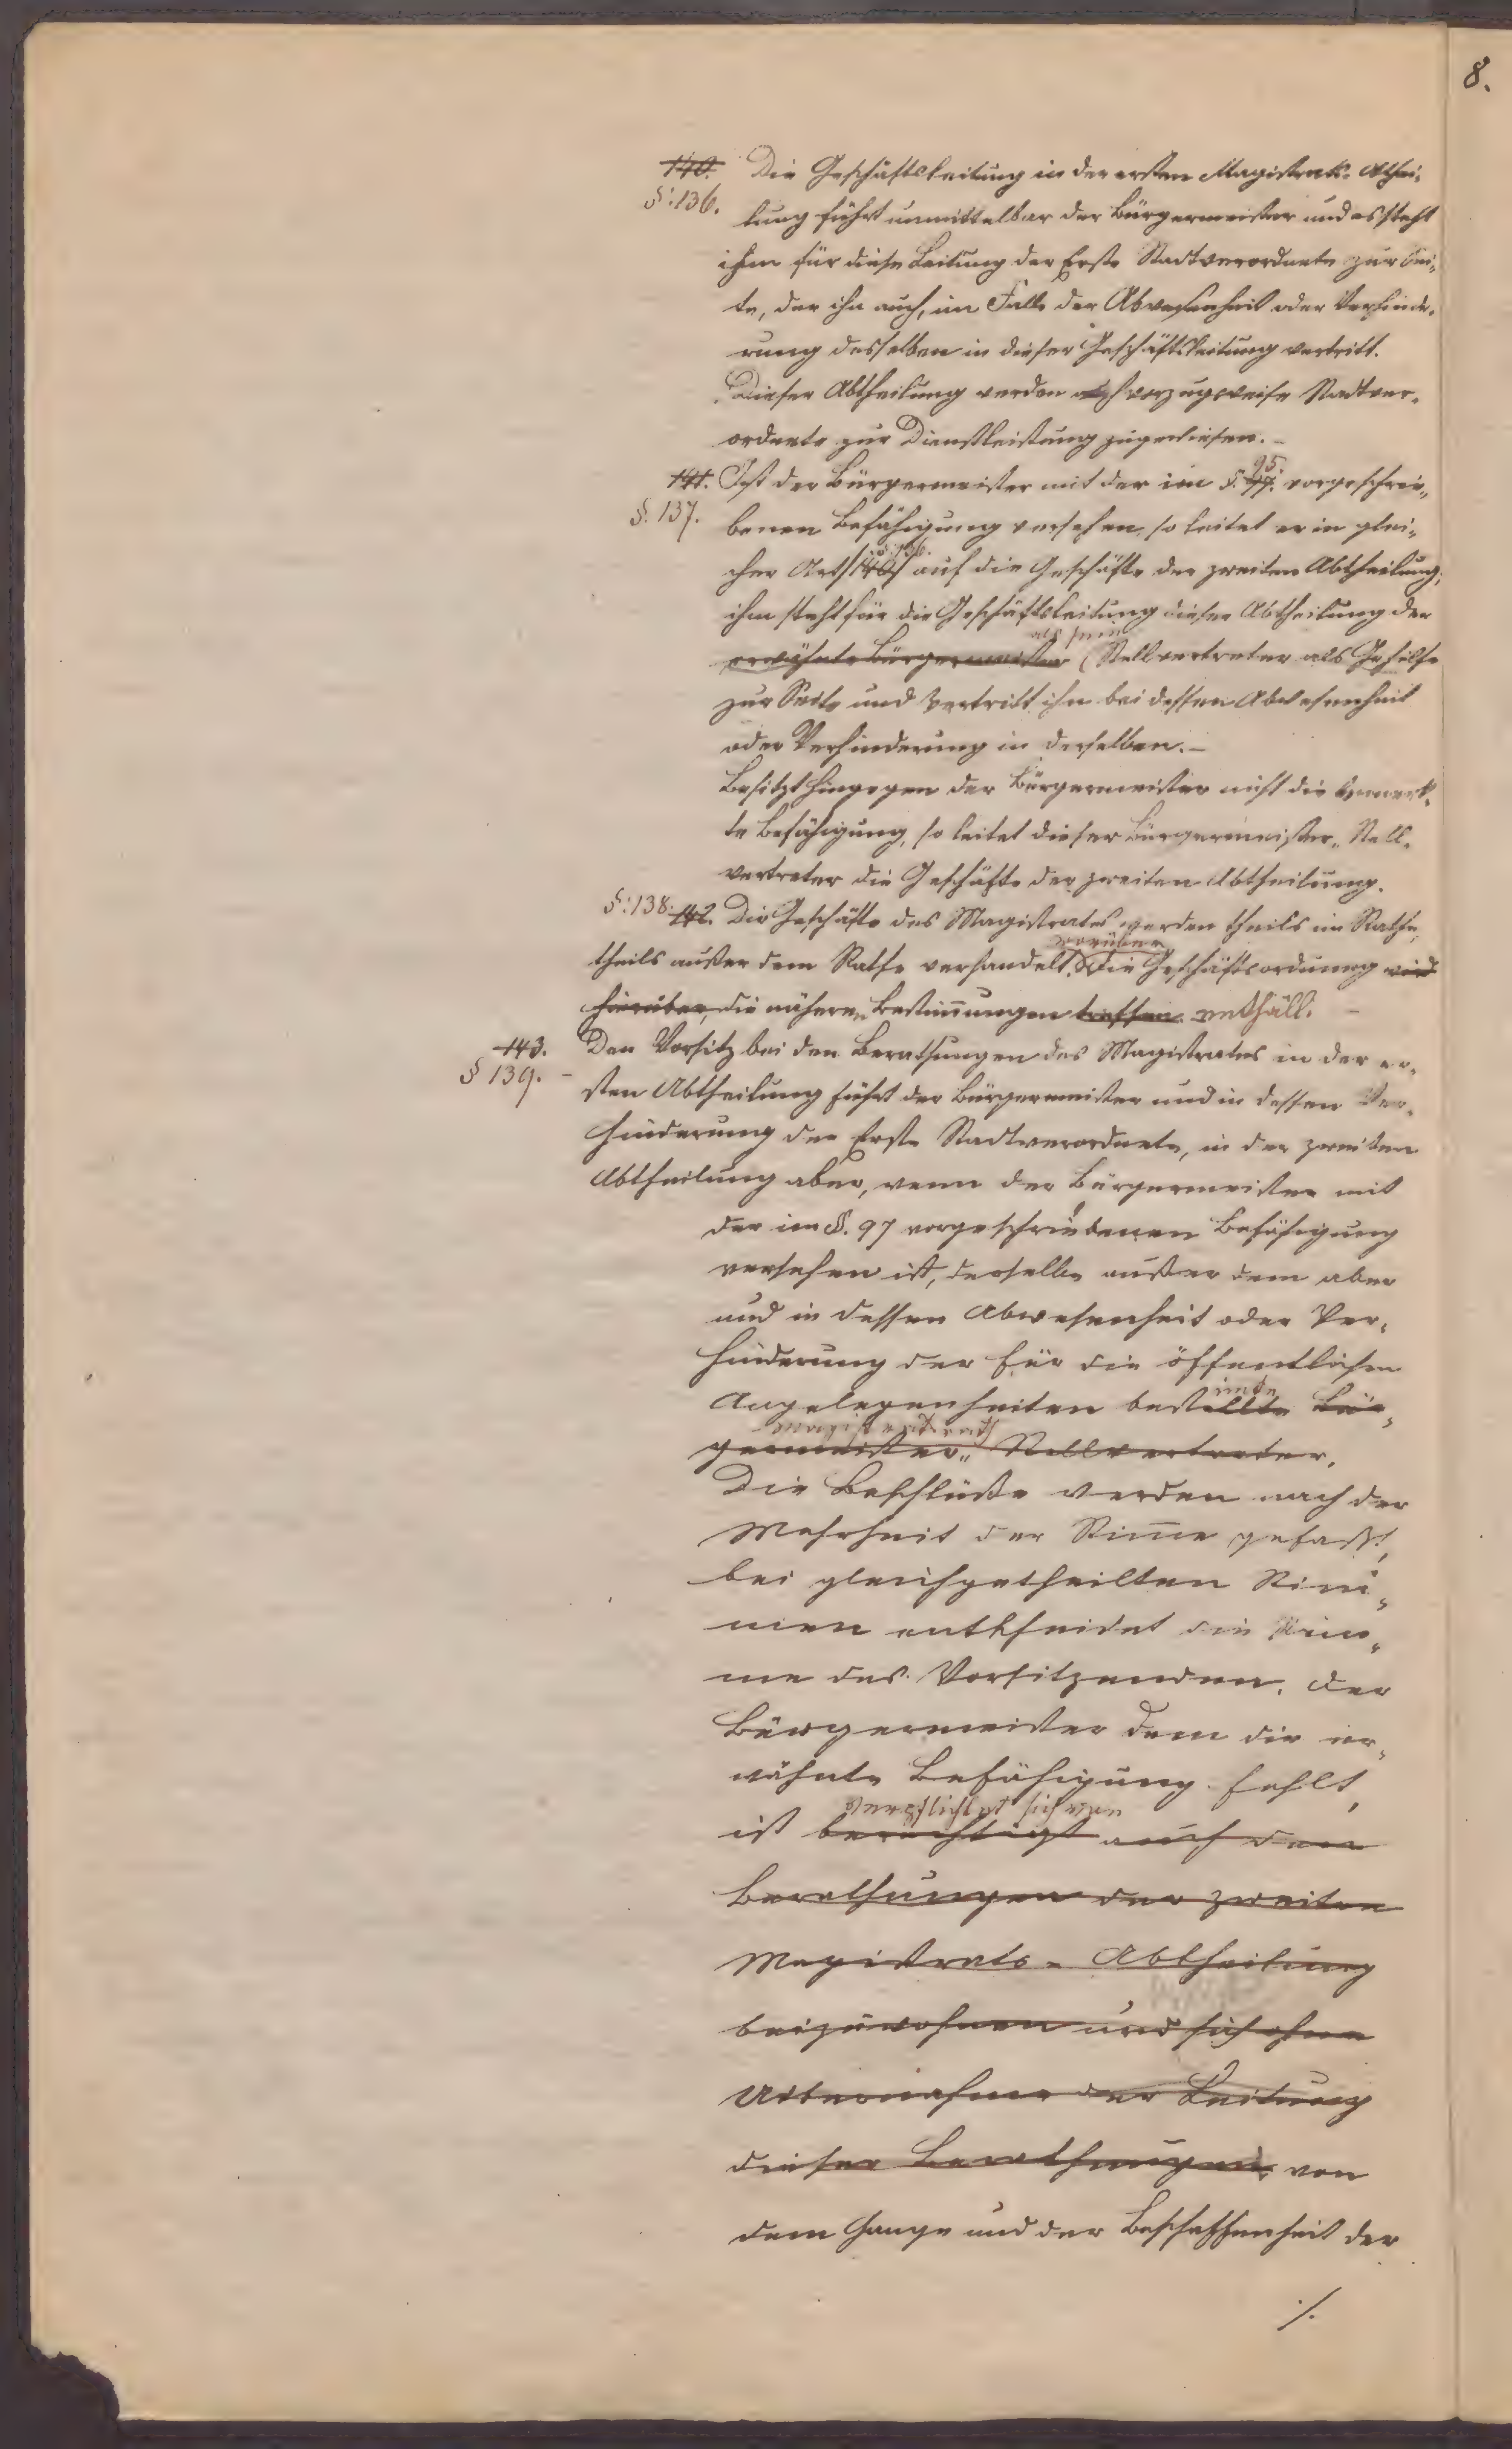 8.
140. Die Geschäftsleitung in der ersten Magistrats-Abthei-
§: 136. lung führt unmittelbar der Bürgermeister und es steht
ihm für diese Leitung der Erste Stadtverordnete zur Sei-
te, der ihn auch, im Falle der Abwesenheit oder Verhinde-
rung desselben in dieser Geschäftsleitung vertritt.
Dieser Abtheilung werden auch vorzugsweise Stadtver-
ordnete zur Dienstleistung zugewiesen.-
95.
141. Ist der Bürgermeister mit der im §. 97. vorgeschrie-
§. 137. benen Befähigung versehen, so leitet er in glei-
§. 136.
cher Art /140/ auf die Geschäfte der zweiten Abtheilung;
ihm steht für die Geschäftsleitung dieser Abtheilung der
als sein
erwähnte Bürgermeister Stellvertreter als Gehilfe
zur Seite und vertritt ihn bei dessen Abwesenheit
oder Verhinderung in derselben.-
Besitzt hingegen der Bürgermeister nicht die bemerk-
te Befähigung, so leitet dieser Bürgermeister-Stell-
vertreter die Geschäfte der zweiten Abtheilung.
§: 138. 142. Die Geschäfte des Magistrates werden theils im Rathe,
worüber
theils außer dem Rathe verhandelt. Die Geschäftsordnung wird
hierüber die näheren Bestim̅ungen treffen. enthält.
143. Den Vorsitz bei den Berathungen des Magistrates in der er-
§ 139. sten Abtheilung führt der Bürgermeister und in dessen Ver-
hinderung der Erste Stadtverordnete, in der zweiten
Abtheilung aber, wenn der Bürgermeister mit
der im §. 97 vorgeschriebenen Befähigung
versehen ist, derselbe außer dem aber
und in dessen Abwesenheit oder Ver-
hinderung der für die öffentlichen
Angelegenheiten bestellte Bür-
Magistratsrath
germeister-Stellvertreter.
Die Beschlüße werden nach der
Mehrheit der Stim̅e gefaßt,
bei gleichgetheilten Stim-
men entscheidet die Stim-
me des Vorsitzenden. Der
Bürgermeister dem die er-
wähnte Befähigung fehlt,
verpflichtet sich von
ist berechtigt auch den
Berathungen der zweiten
Magistrats-Abtheilung
beizuwohnen und sich ohne
Uibernahme der Leitung
dieser Berathungen, von
dem Gange und der Beschaffenheit der
./.